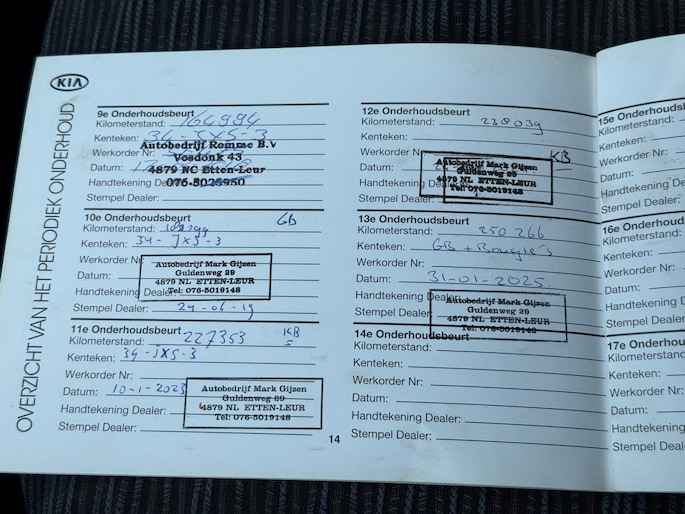 KIA
OVERZICHT VAN HET PERIODIEK ONDERHOUD
9e Onderhoudsbeurt
Kilometerstand: 164994
Kenteken: 34-JXS-3
Werkorder Nr:
Datum:
Handtekening Dealer:
Stempel Dealer:
Autobedrijf Romme B.V
Vosdonk 43
4879 NC Etten-Leur
076-5025950
10e Onderhoudsbeurt GB
Kilometerstand:
Kenteken: 34-JXS-3
Werkorder Nr:
Datum:
Handtekening Dealer:
Stempel Dealer: 24-06-19
Autobedrijf Mark Gijzen
Guldenweg 29
4879 NL ETTEN-LEUR
Tel: 076-5019148
11e Onderhoudsbeurt KB
Kilometerstand: 227353 S
Kenteken: 34-JXS-3
Werkorder Nr:
Datum: 10-1-2023
Handtekening Dealer:
Stempel Dealer:
Autobedrijf Mark Gijzen
Guldenweg 29
4879 NL ETTEN-LEUR
Tel: 076-5019148
14
12e Onderhoudsbeurt
Kilometerstand: 238039
Kenteken:
Werkorder Nr: KB
Datum:
Handtekening Dealer:
Stempel Dealer:
Autobedrijf Mark Gijzen
Guldenweg 29
4879 NL ETTEN-LEUR
Tel: 076-5019148
13e Onderhoudsbeurt
Kilometerstand: 250.266
Kenteken: GB + Bougie's
Werkorder Nr:
Datum: 31-01-2025
Handtekening Dealer:
Stempel Dealer:
Autobedrijf Mark Gijzen
Guldenweg 29
4879 NL ETTEN-LEUR
Tel: 076-5019148
14e Onderhoudsbeurt
Kilometerstand:
Kenteken:
Werkorder Nr:
Datum:
Handtekening Dealer:
Stempel Dealer:
15e Onderhouds
Kilometerstand:
Kenteken:
Werkorder Nr:
Datum:
Handtekening
Stempel Deal
16e Onderhou
Kilometerstand
Kenteken:
Werkorder Nr
Datum:
Handtekening
Stempel Deal
17e Onderhou
Kilometerstan
Kenteken:
Werkorder Nr
Datum:
Handtekening
Stempel Deal